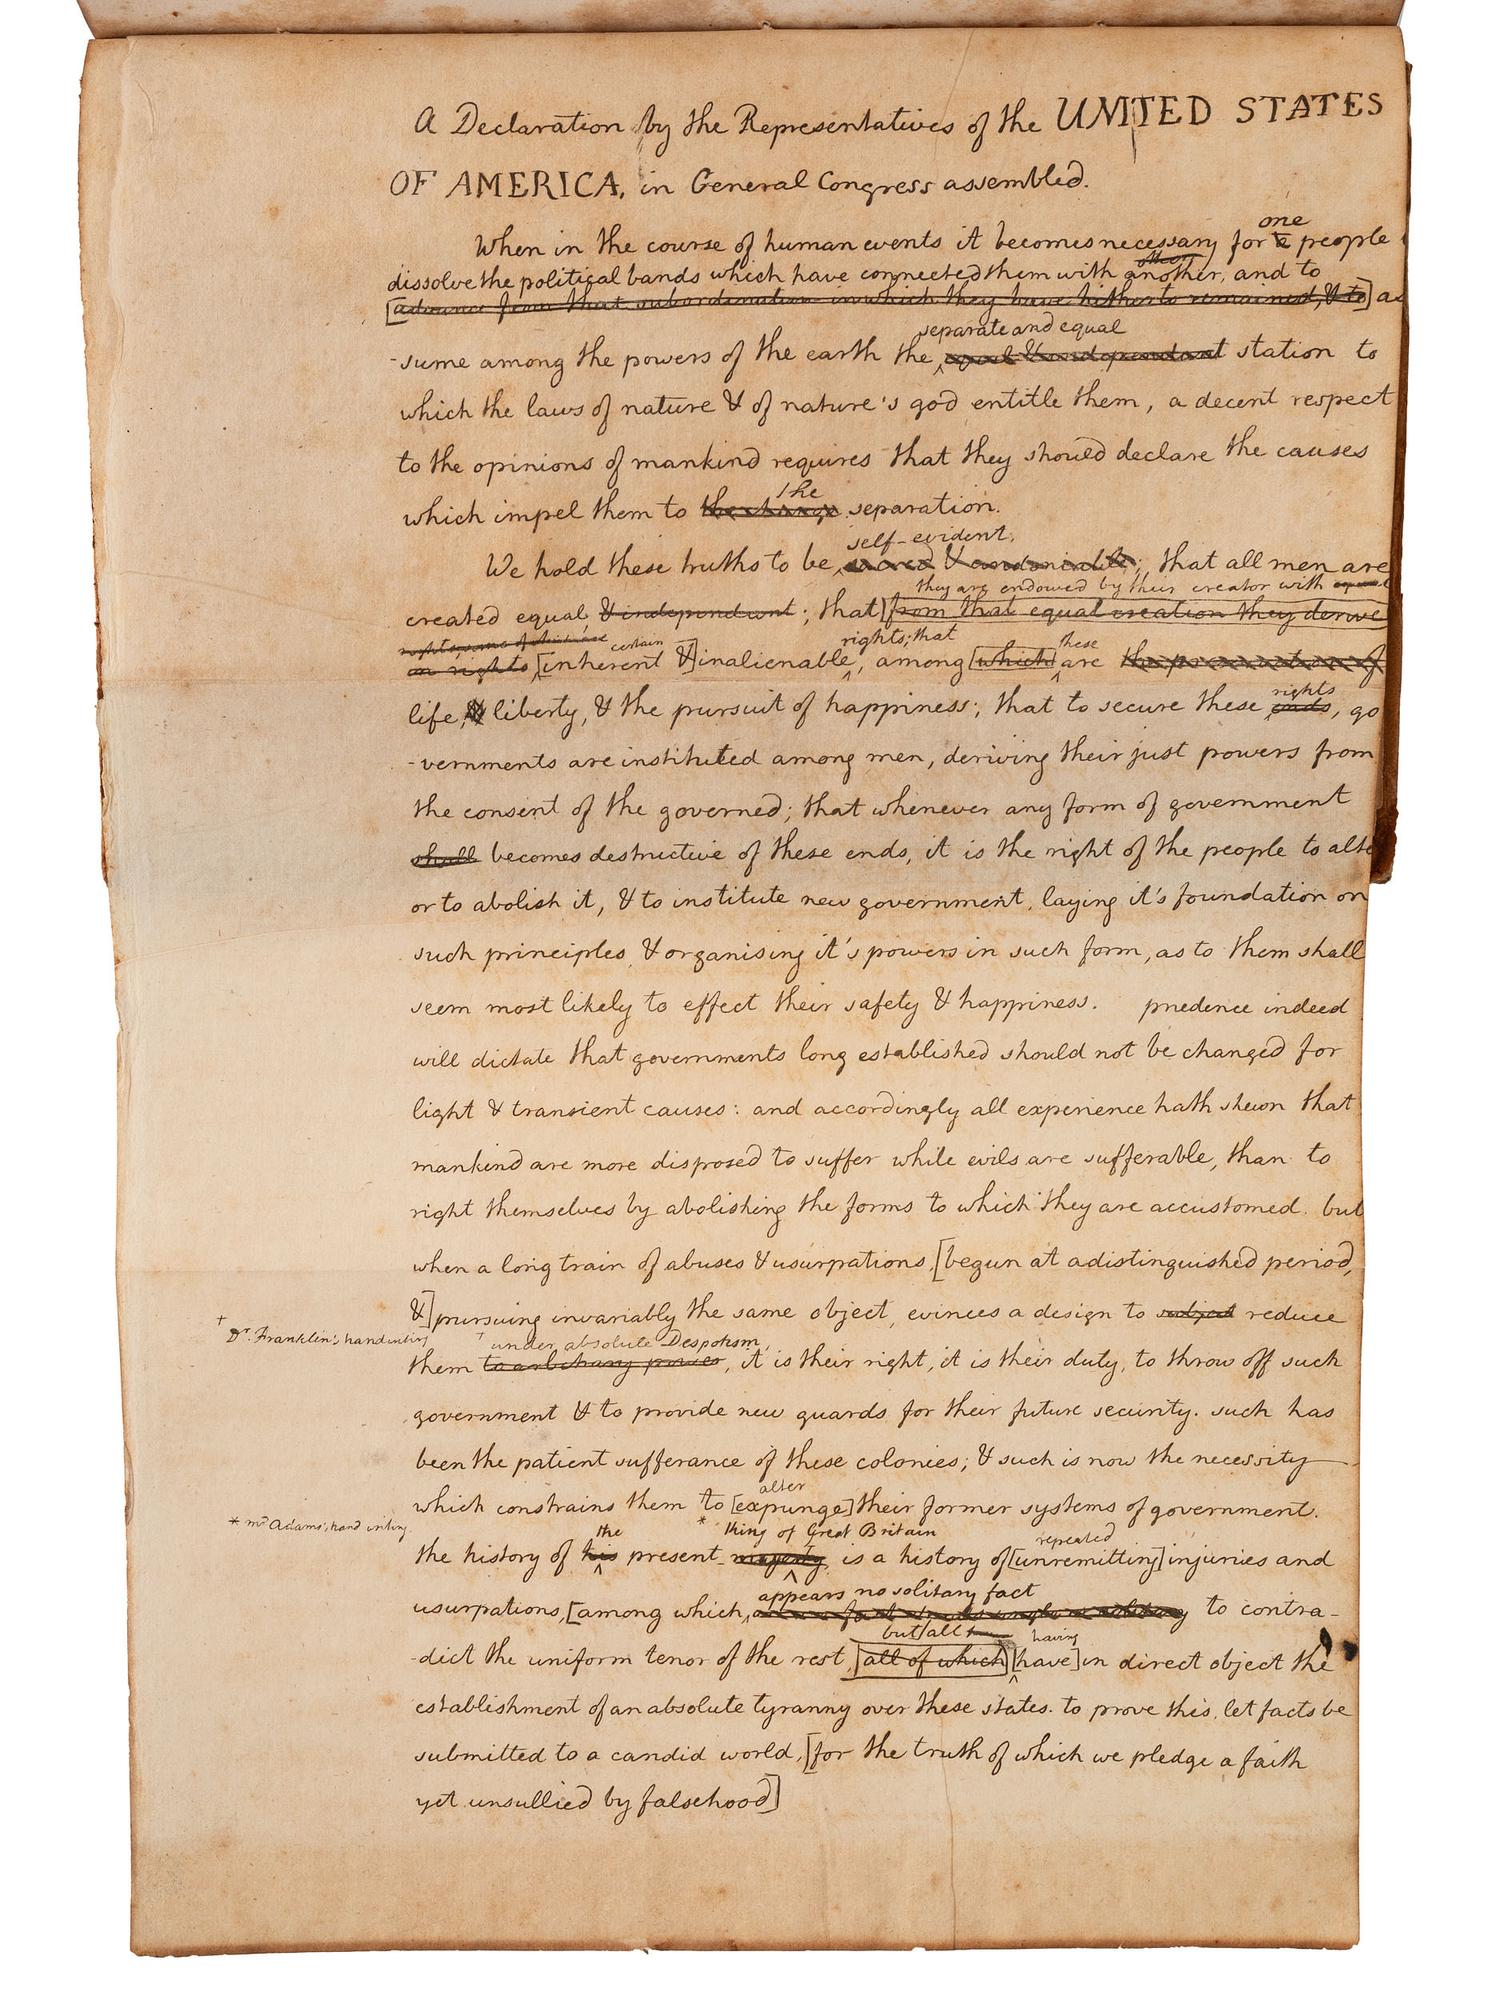 A Declaration by the Representatives of the UNITED STATES
OF AMERICA, in General Congress assembled.
one
When in the course of human events it becomes necessary for a people
dissolve the political bands which have connected them with another, and to
[advance from that subordination in which they have hitherto remained, & to] as
separate and equal
-sume among the powers of the earth the equal & independant station to
which the laws of nature & of nature's god entitle them, a decent respect
to the opinions of mankind requires that they should declare the causes
the
which impel them to the change separation.
self-evident,
We hold these truths to be sacred & undeniable; that all men are
they are endowed by their creator with equal
created equal & independant; that [from that equal creation they derive
rights, some of which are certain rights; that these
in rights [inherent &] inalienable, among [which] are the preservation of
rights
life, & liberty, & the pursuit of happiness; that to secure these ends, go
-vernments are instituted among men, deriving their just powers from
the consent of the governed; that whenever any form of government
shall becomes destructive of these ends, it is the right of the people to alte
or to abolish it, & to institute new government, laying it's foundation on
such principles & organising it's powers in such form, as to them shall
seem most likely to effect their safety & happiness. prudence indeed
will dictate that governments long established should not be changed for
light & transient causes: and accordingly all experience hath shewn that
mankind are more disposed to suffer while evils are sufferable, than to
right themselves by abolishing the forms to which they are accustomed. but
when a long train of abuses & usurpations, [begun at a distinguished period,
&] pursuing invariably the same object, evinces a design to subject reduce
† Dr. Franklin's handwriting † under absolute Despotism,
them to arbitrary power, it is their right, it is their duty, to throw off such
government & to provide new guards for their future security. such has
been the patient sufferance of these colonies; & such is now the necessity
alter
which constrains them to [expunge] their former systems of government.
* Mr. Adams' hand writing the * King of Great Britain repeated
the history of his present majesty is a history of [unremitting] injuries and
appears no solitary fact
usurpations, [among which, to contra-
but all having
-dict the uniform tenor of the rest, [all of which] [have] in direct object the
establishment of an absolute tyranny over these states. to prove this, let facts be
submitted to a candid world, [for the truth of which we pledge a faith
yet unsullied by falsehood]